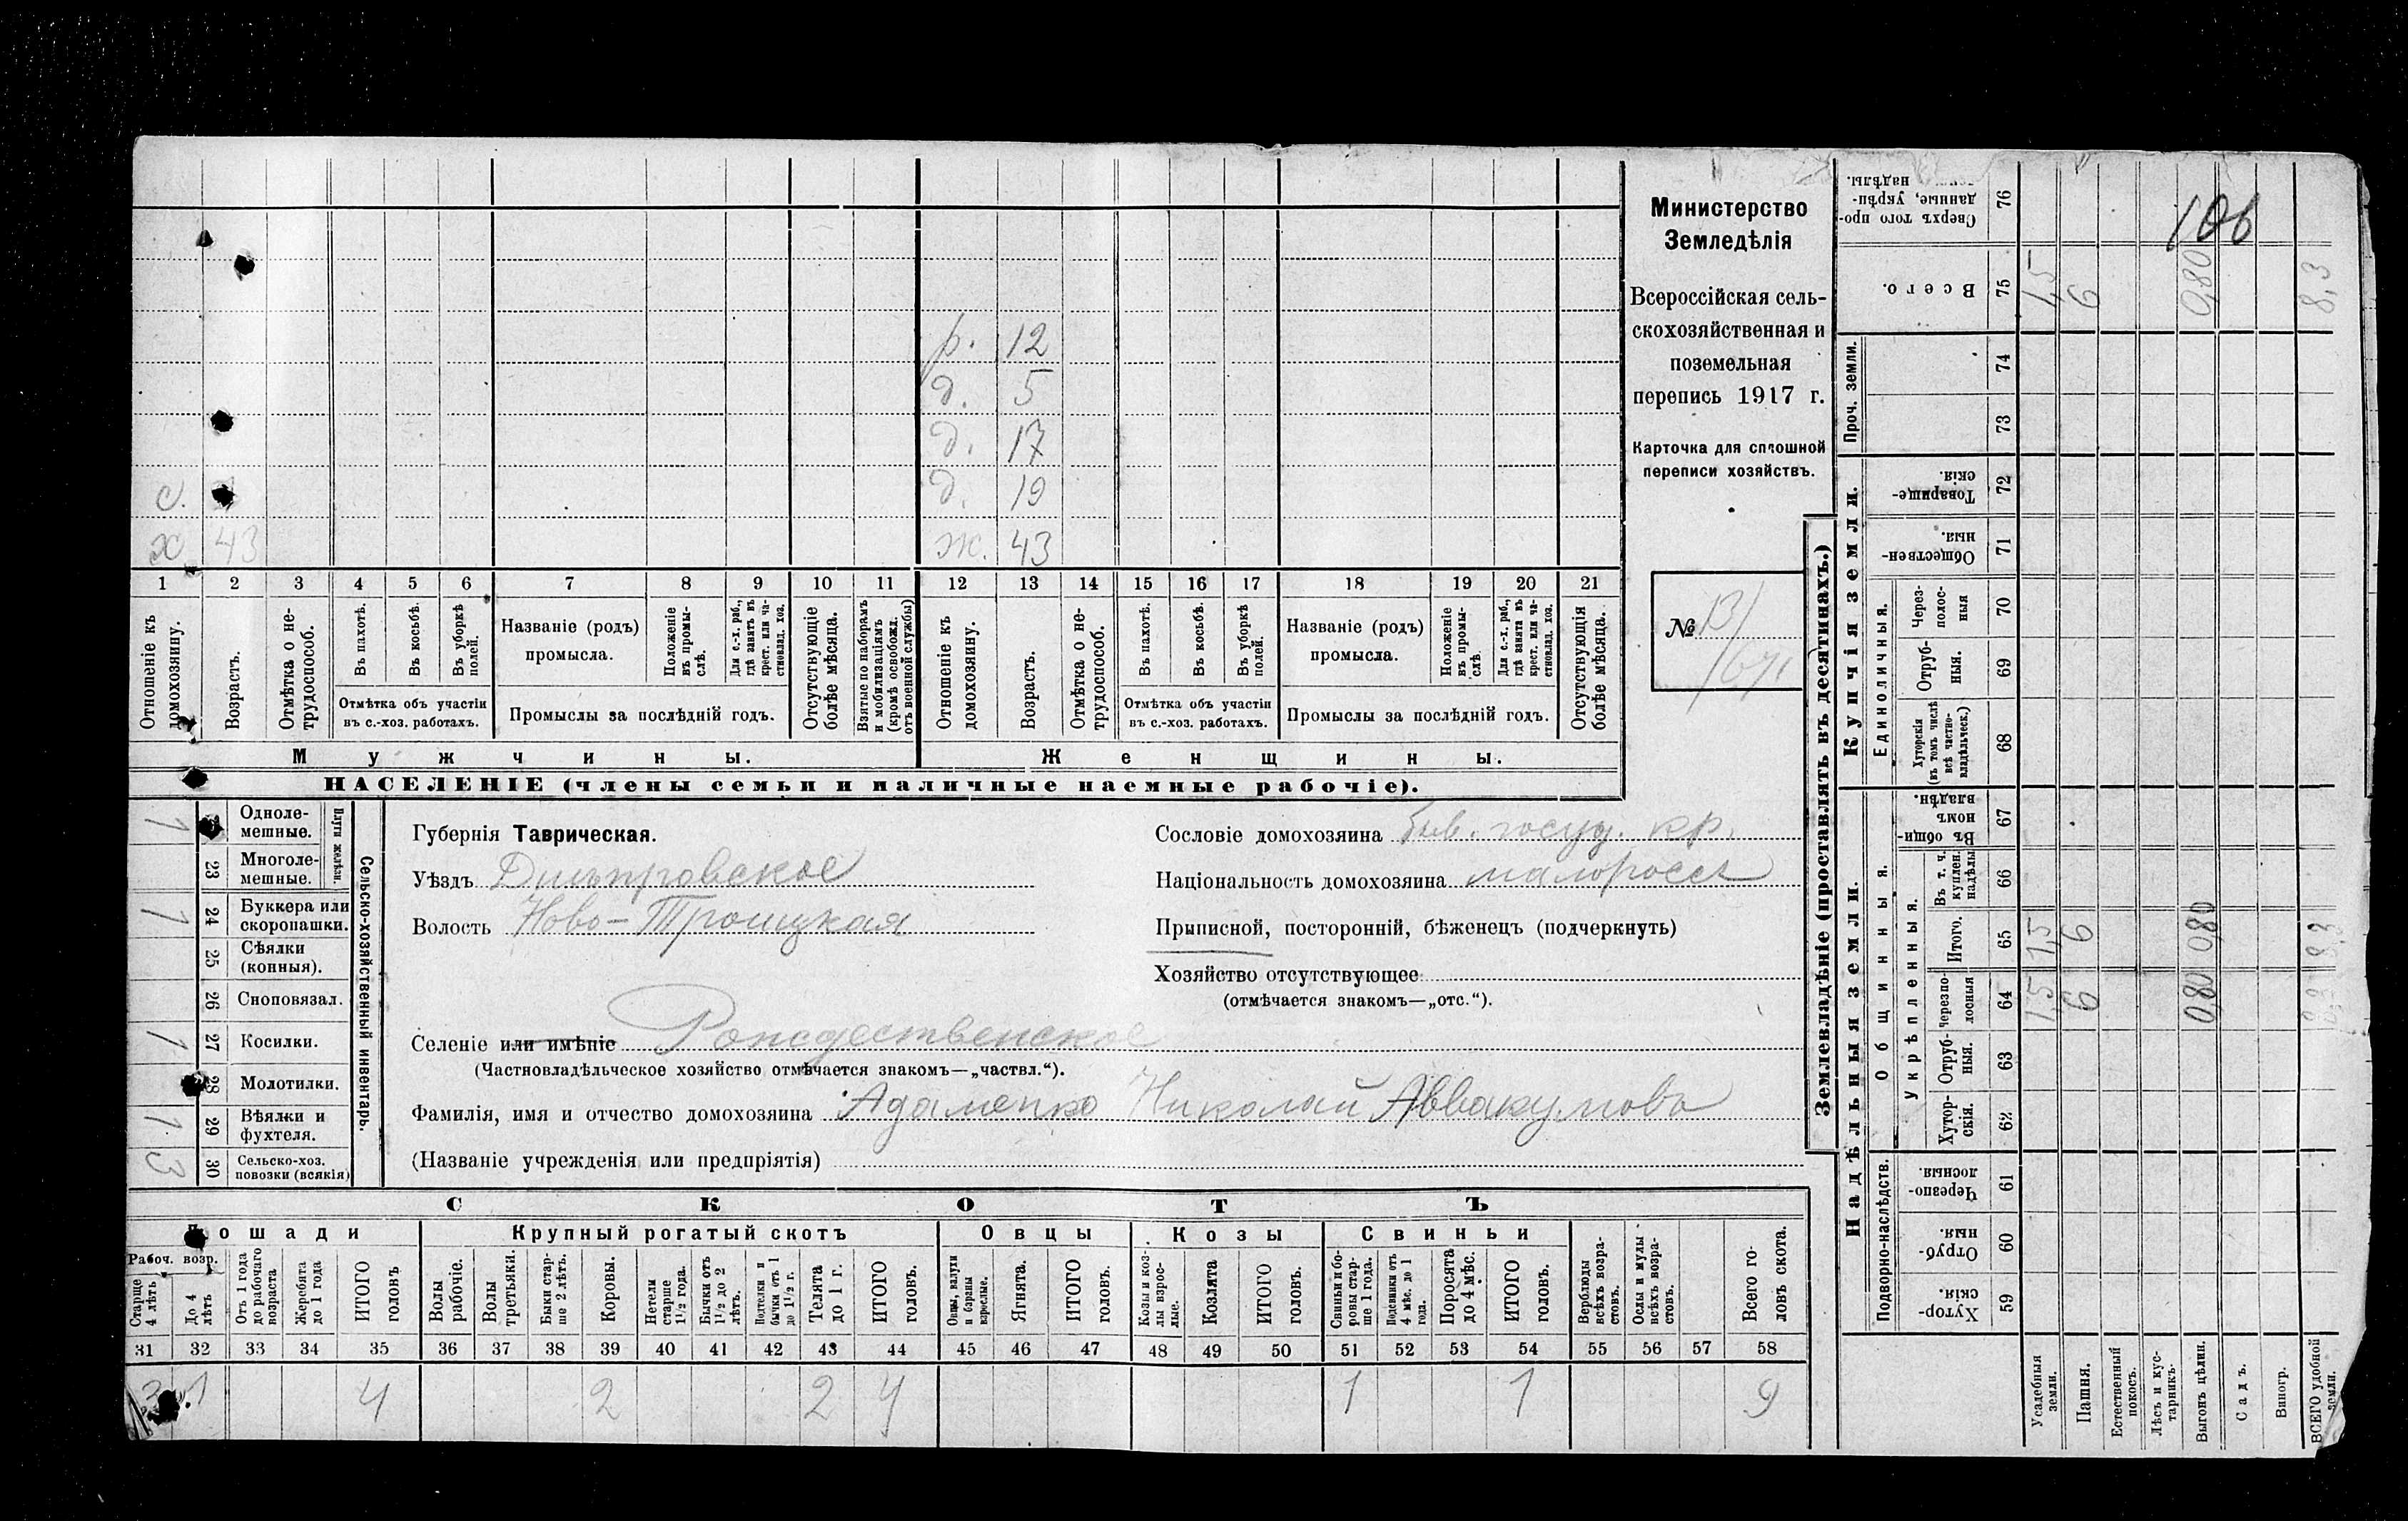 р. 12
д. 5
д. 17
д. 19
с.
х. 43 ж. 43
1 2 3 4 5 6 7 8 9 10 11 12 13 14 15 16 17 18 19 20 21
Отношеніе къ домохозяину.
Возрастъ.
Отмѣтка о не-
трудоспособ.
Въ пахотѣ.
Въ косьбѣ.
Въ уборкѣ полей.
Отмѣтка объ участіи
въ с.-хоз. работахъ.
Названіе (родъ)
промысла.
Положеніе въ промы-
слѣ.
Для с.-х. раб., гдѣ занятъ въ крест. или ча-
стновлад. хоз.
Промыслы за послѣдній годъ.
Отсутствующіе болѣе мѣсяца.
Взятые по наборамъ и мобилизаціямъ (кромѣ освобожд. отъ военной службы)
Отношеніе къ домохозяину.
Возрастъ.
Отмѣтка о не-
трудоспособ.
Въ пахотѣ.
Въ косьбѣ.
Въ уборкѣ полей.
Отмѣтка объ участіи
въ с.-хоз. работахъ.
Названіе (родъ)
промысла.
Положеніе въ промы-
слѣ.
Для с.-х. раб., гдѣ занята въ крест. или ча-
стновлад. хоз.
Промыслы за послѣдній годъ.
Отсутствующія болѣе мѣсяца.
Мужчины. Женщины.
НАСЕЛЕНІЕ (члены семьи и наличные наемные рабочіе).
Министерство
Земледѣлія
Всероссійская сель-
скохозяйственная и
поземельная
перепись 1917 г.
Карточка для сплошной
переписи хозяйствъ.
№ 13/
Сельско-хозяйственный инвентарь.
Плуги желѣзн.
Однолемешные. 1
Многолемешные. 23
Буккера или скоропашки. 24 1
Сѣялки (конныя). 25
Сноповязал. 26
Косилки. 27 1
Молотилки. 28
Вѣялки и фухтеля. 29 1
Сельско-хоз. повозки (всякія) 30 3
Губернія Таврическая.
Уѣздъ Днѣпровское
Волость Ново-Троицкая
Сословіе домохозяина быв. госуд. кр.
Національность домохозяина малороссъ
Приписной, посторонній, бѣженецъ (подчеркнуть)
Хозяйство отсутствующее
(отмѣчается знакомъ—„отс.“).
Селеніе или имѣніе Рождественское
(Частновладѣльческое хозяйство отмѣчается знакомъ—„частвл.“).
Фамилія, имя и отчество домохозяина Адаменко Николай Аввакумовъ
(Названіе учрежденія или предпріятія)
СКОТЪ
Лошади Крупный рогатый скотъ Овцы Козы Свиньи
Рабоч. возр.
Старше 4 лѣтъ
До 4 лѣтъ
Отъ 1 года до рабочаго возраста
Жеребята до 1 года
ИТОГО головъ
Волы рабочіе.
Волы третьяки.
Быки стар-
ше 2 лѣтъ.
Коровы.
Нетели старше 1½ года.
Бычки отъ 1½ до 2 лѣтъ.
Подтелки и бычки отъ 1 до 1½ г.
Телята до 1 г.
ИТОГО головъ.
Овцы, валухи и бараны взрослые.
Ягнята.
ИТОГО головъ.
Козы и коз-
лы взрос-
лые.
Козлята
ИТОГО головъ.
Свиньи и бо-
ровы стар-
ше 1 года.
Подсвинки отъ 4 мѣс. до 1 года.
Поросята до 4 мѣс.
ИТОГО головъ.
Верблюды всѣхъ возра-
стовъ.
Ослы и мулы всѣхъ возра-
стовъ.
Всего го-
ловъ скота.
31 32 33 34 35 36 37 38 39 40 41 42 43 44 45 46 47 48 49 50 51 52 53 54 55 56 57 58
3 1 4 2 2 4 1 1 9
Землевладѣніе (проставлять въ десятинахъ.)
Надѣльныя земли. Купчія земли. Проч. земли.
Подворно-наслѣдств.
Общинныя.
Укрѣпленныя.
Единоличныя.
Сверхъ того про-
данные, укрѣп-
надѣлы. 76
106
Всего. 75 1,5 6 0,80 8,3
74
73
Товарище-
скія. 72
Обществен-
ныя. 71
Через-
полос-
ныя 70
Отруб-
ныя. 69
Хуторскія (въ томъ числѣ всѣ частно-
владѣльческ.) 68
Въ общин-
номъ владѣн. 67
Въ т. ч. куплен. надѣлы 66
Итого. 65 1,5 6 0,80 8,3
Черезпо-
лосныя 64 1,5 6 0,80 8,3
Отруб-
ныя. 63
Хутор-
скія. 62
Черезпо-
лосныя. 61
Отруб-
ныя. 60
Хутор-
скія. 59
Усадебныя земли.
Пашня.
Естественный покосъ.
Лѣсъ и кус-
тарникъ.
Выгонъ цѣлин.
Садъ.
Виногр.
ВСЕГО удобной земли.